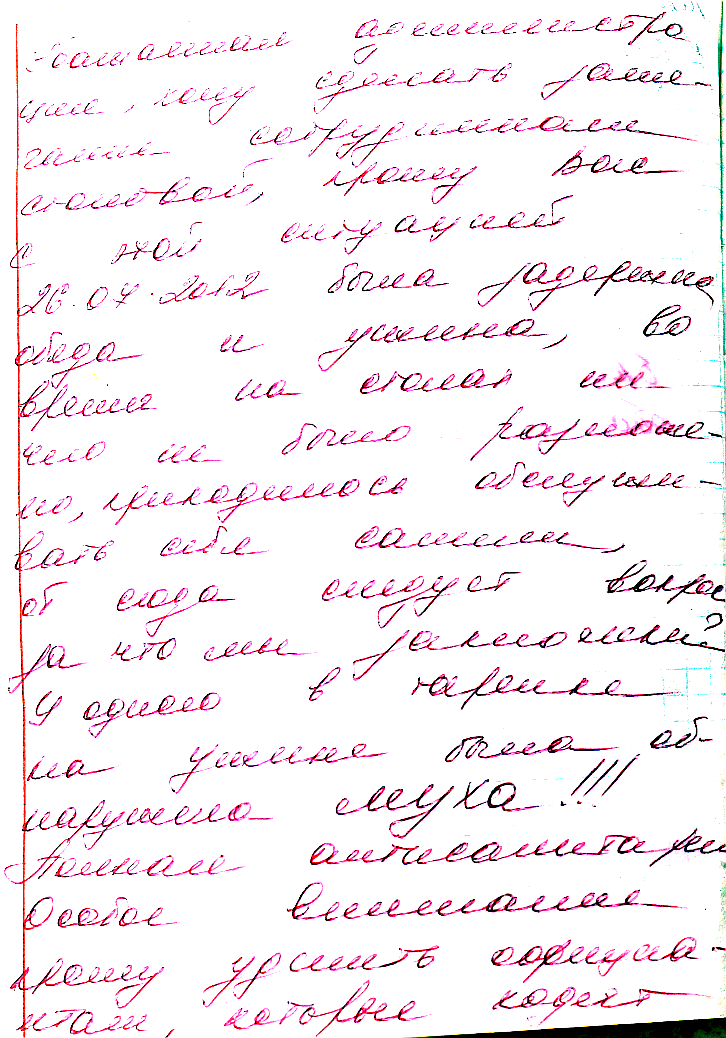 Уважаемая администра
ция, хочу сделать заме-
чание сотрудникам
столовой, прошу Вас
с этой ситуацией
26.07.2012 была задержка
обеда и ужина, во
время на столах ни-
чего не было разложе-
но, приходилось обслужи-
вать себя самим,
от сюда следует вопрос
за что мы заплатили?
У одного в тарелке
на ужине была об-
наружена муха!!!
Полная антисанитария
Особое внимание
прошу уделить официа-
нтам, которые ходят